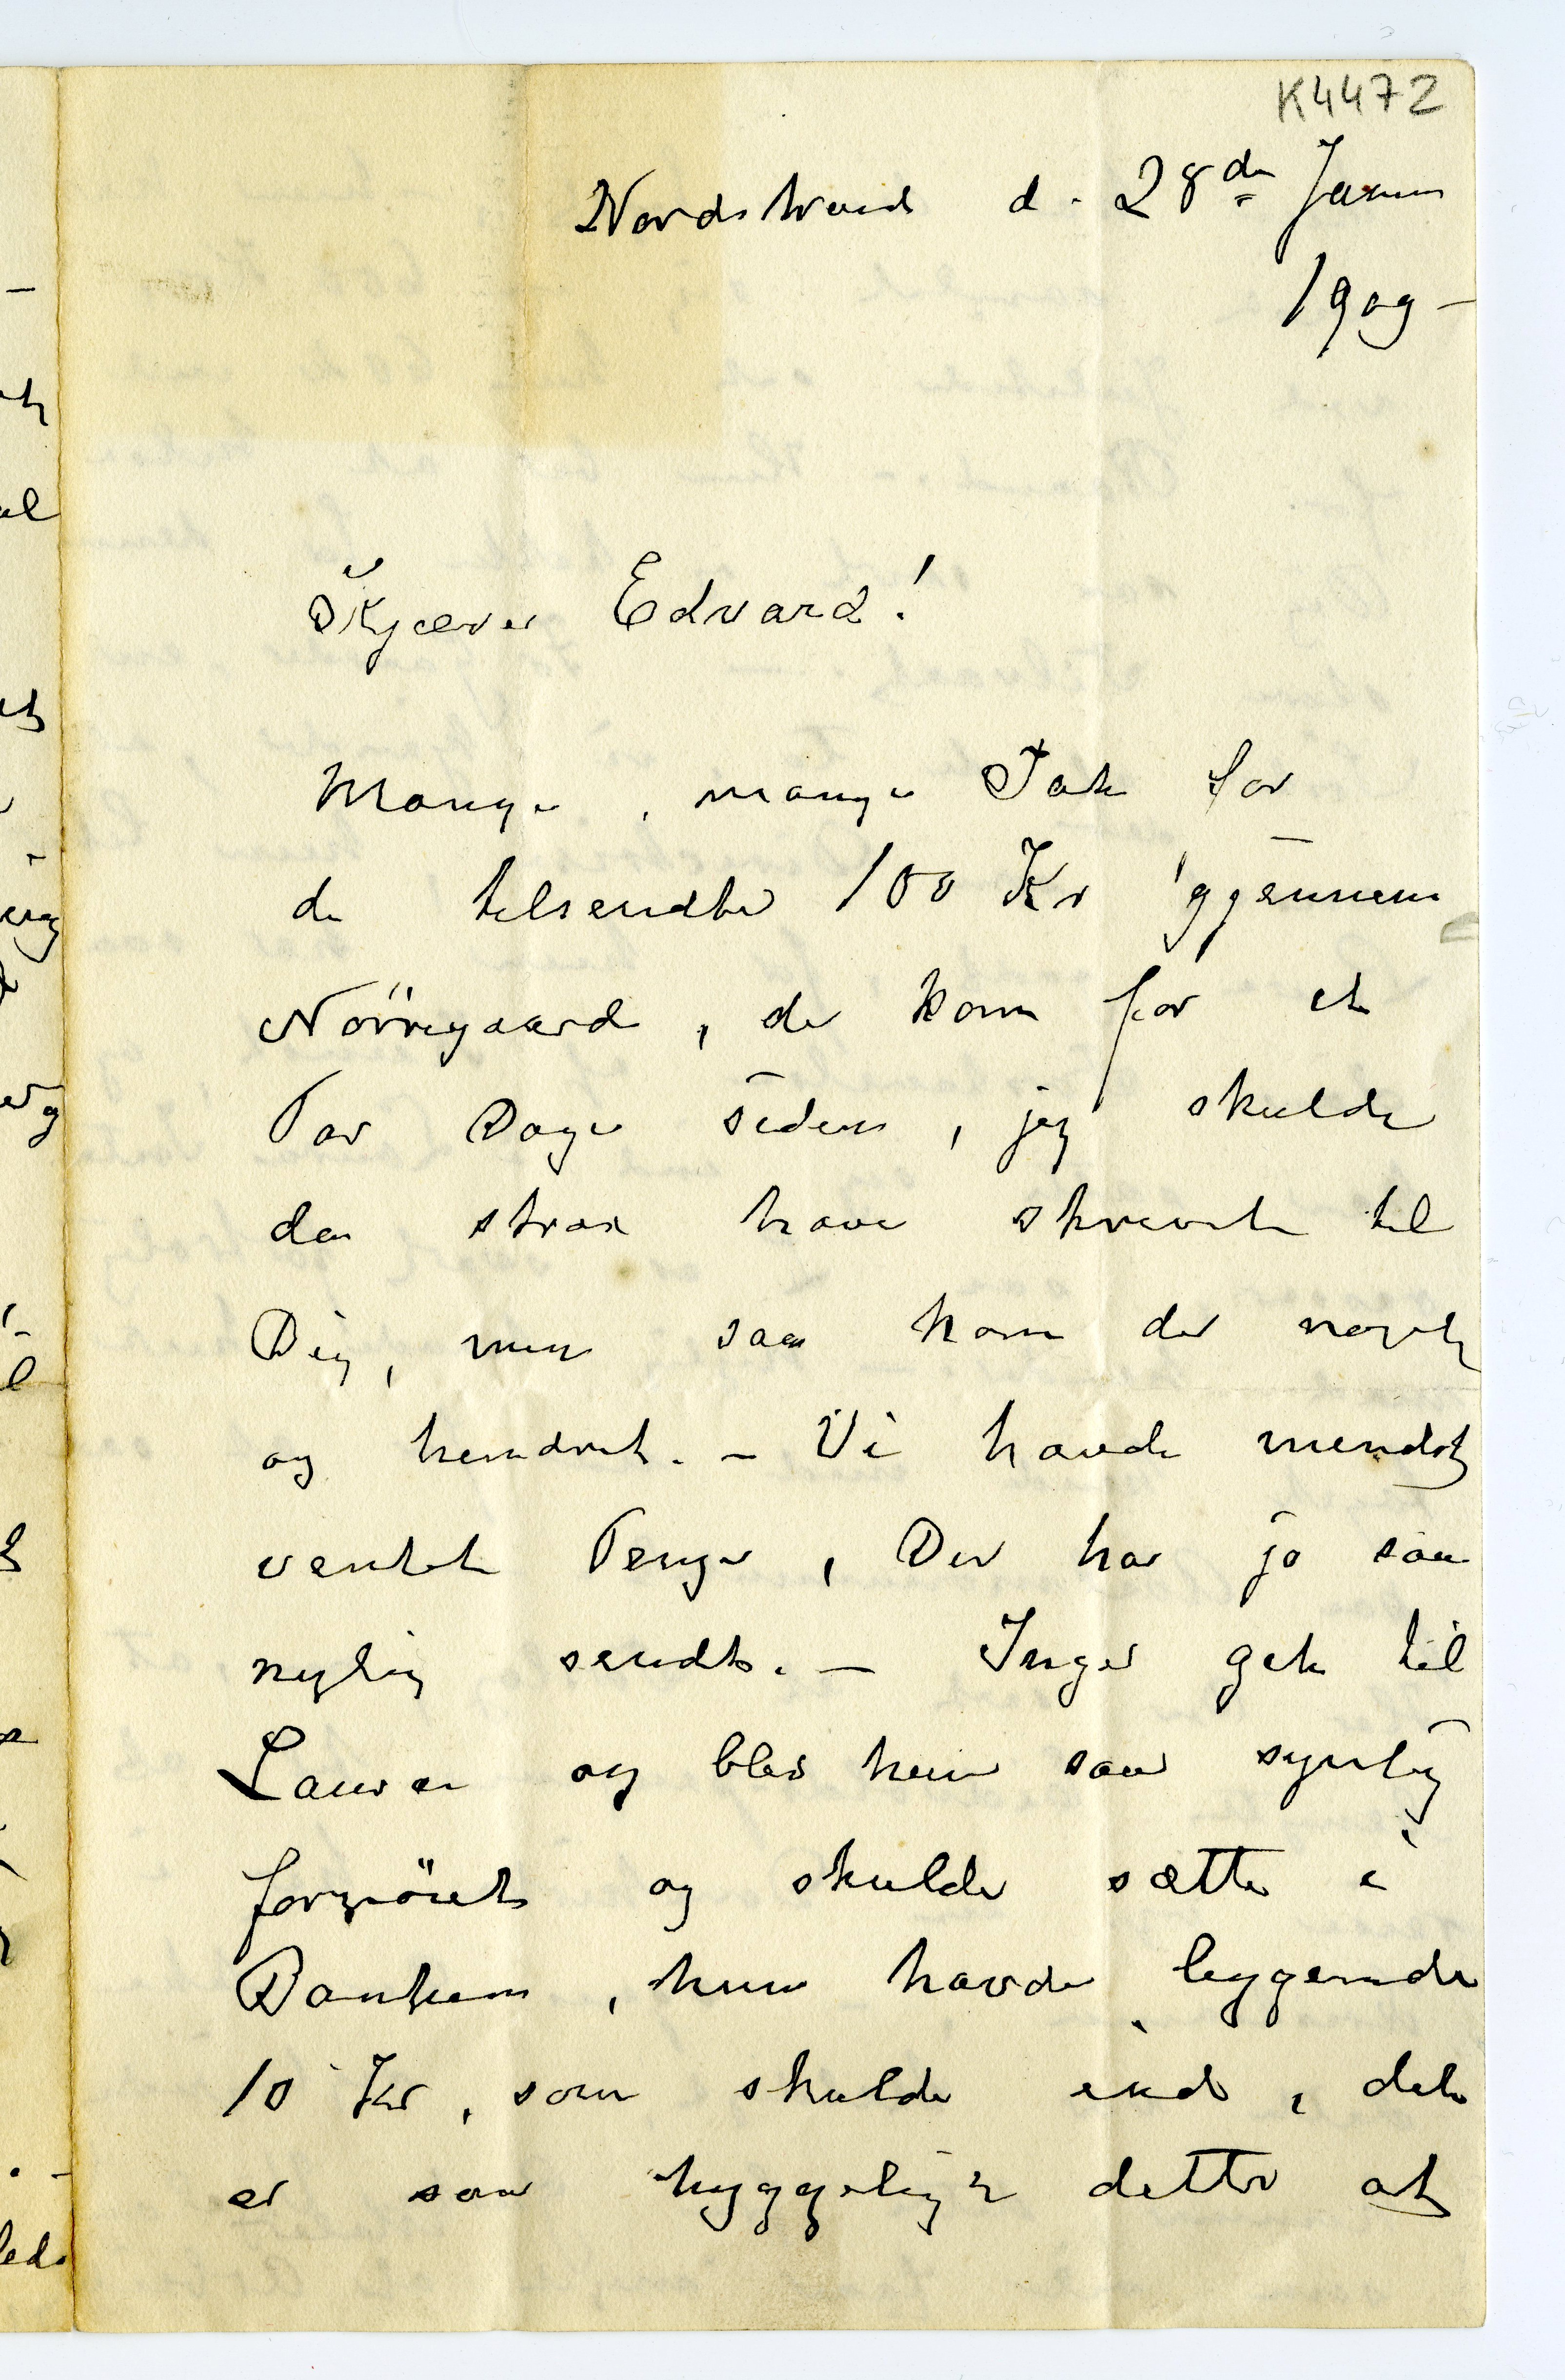 K4472
Nordstrand d. 28de Januar
1909 –
Kjære Edvard!
Mange, mange Tak for
de tilsendte 100 Kr gjennem
Nörregaard, de kom for et
Par Dage siden, jeg skulde
da strax have skrevet til
Dig, men saa kom der noget
og hendret. – Vi havde mendst
ventet Penge, Du har jo saa
nylig sendt. – Inger gik til
Laura og blev hun saa synlig
fornöiet og skulde sætte i
Banken, hun havde liggende
10 Kr, som skulde ind, det
er saa hyggeligt dette at